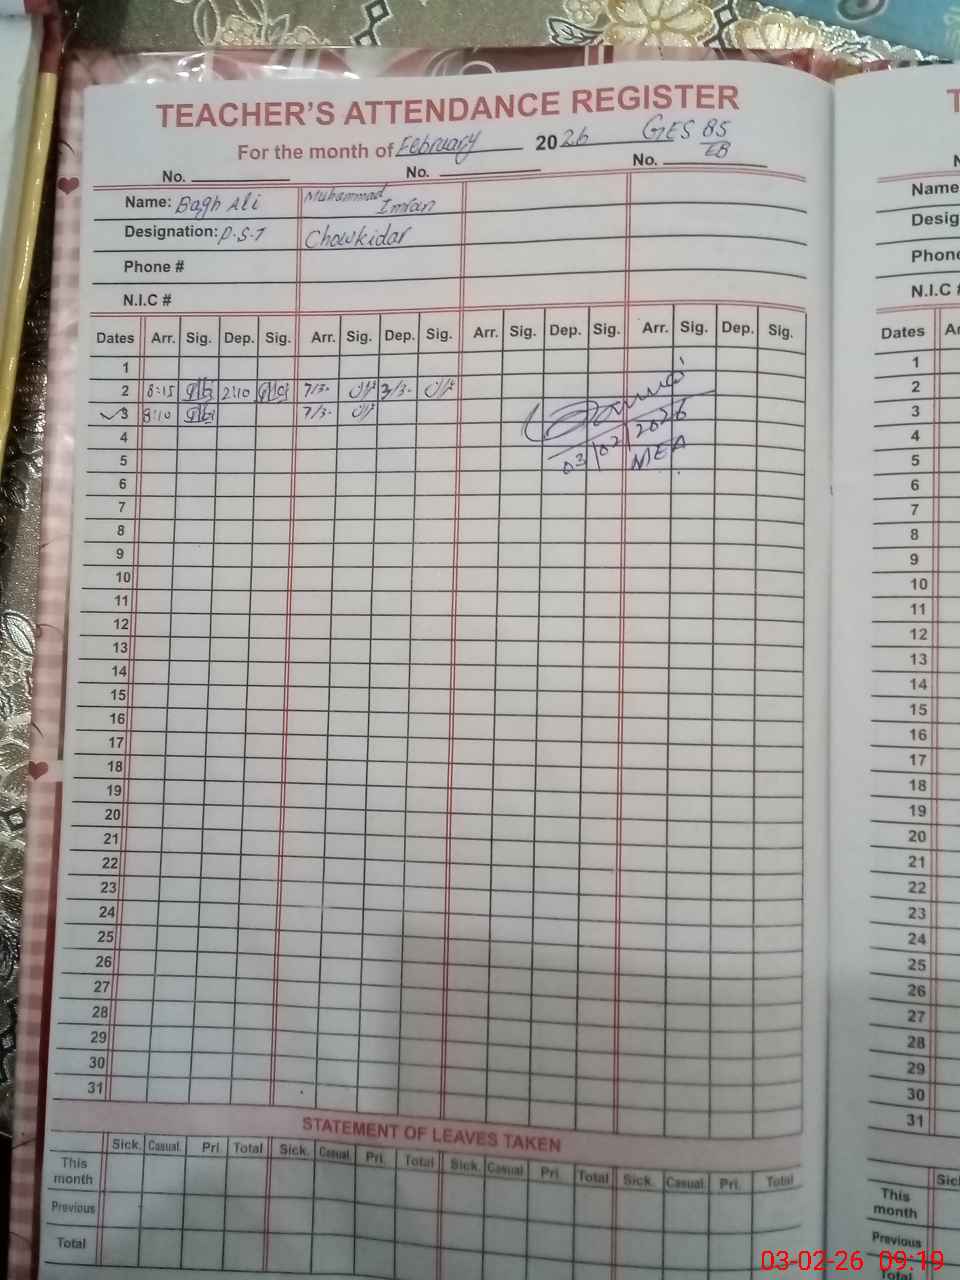 TEACHER'S ATTENDANCE REGISTER
For the month of February 2026 GES 85/EB
No. No. No.
Name: Bagh Ali Muhammad Imran
Designation: P.S.T Chowkidar
Phone #
N.I.C #
Dates Arr. Sig. Dep. Sig. Arr. Sig. Dep. Sig. Arr. Sig. Dep. Sig. Arr. Sig. Dep. Sig.
1
2 8:15 2:10 7/3. 3/3.
3 8:10 7/3.
03/02/2026
MEA
4
5
6
7
8
9
10
11
12
13
14
15
16
17
18
19
20
21
22
23
24
25
26
27
28
29
30
31
STATEMENT OF LEAVES TAKEN
Sick. Casual. Pri. Total Sick. Casual. Pri. Total Sick. Casual. Pri. Total Sick. Casual. Pri. Total
This month
Previous
Total
Name
Desig
Phone
N.I.C #
Dates
1
2
3
4
5
6
7
8
9
10
11
12
13
14
15
16
17
18
19
20
21
22
23
24
25
26
27
28
29
30
31
This month
Previous
Total
03-02-26 09:19